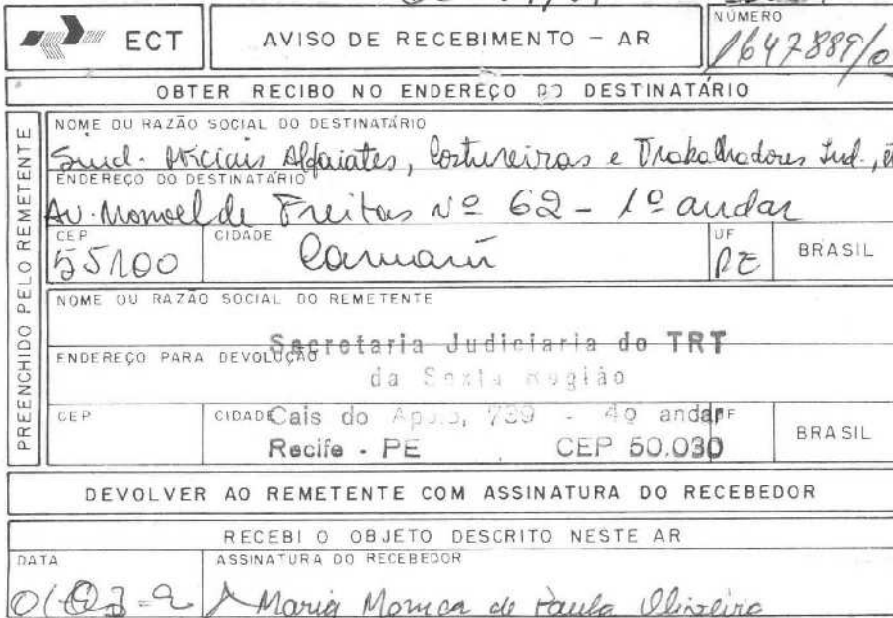 ECT
AVISO DE RECEBIMENTO - AR
NÚMERO
1647889/0
OBTER RECIBO NO ENDEREÇO DO DESTINATÁRIO
PREENCHIDO PELO REMETENTE
NOME OU RAZÃO SOCIAL DO DESTINATÁRIO
Sind. Oficiais Alfaiates, Costureiras e Trabalhadores Ind.,
ENDEREÇO DO DESTINATÁRIO
Av. Manoel de Freitas Nº 62 - 1º andar
CEP
55100
CIDADE
Caruaru
UF
PE
BRASIL
NOME OU RAZÃO SOCIAL DO REMETENTE
Secretaria Judiciaria do TRT
ENDEREÇO PARA DEVOLUÇÃO
da Sexta Região
CEP
CIDADE
UF
Cais do Apolo, 739 - 4º andar
Recife - PE CEP 50.030
BRASIL
DEVOLVER AO REMETENTE COM ASSINATURA DO RECEBEDOR
RECEBI O OBJETO DESCRITO NESTE AR
DATA
ASSINATURA DO RECEBEDOR
Maria Monica de Paula Oliveira